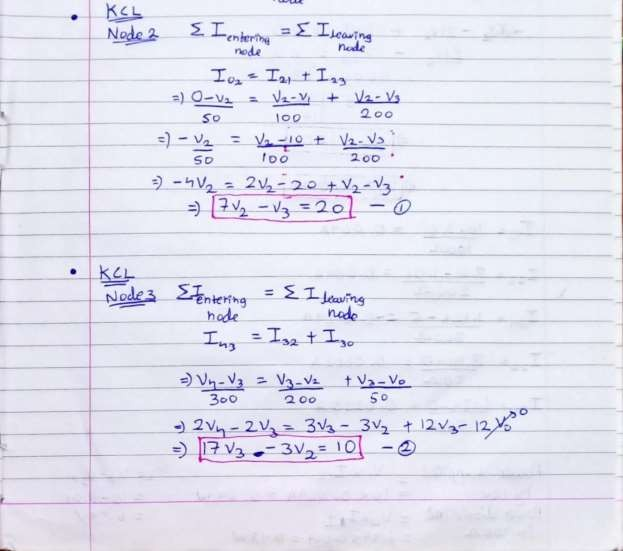 • KCL
Node 2 Σ I entering node = Σ I leaving node
I02 = I21 + I23
⇒) 0-V2/50 = V2-V1/100 + V2-V3/200
⇒) -V2/50 = V2-10/100 + V2-V3/200
⇒) -4V2 = 2V2-20 + V2-V3
⇒) 7V2 - V3 = 20 - ①
• KCL
Node 3 ΣI entering node = Σ I leaving node
I43 = I32 + I30
⇒) V4-V3/300 = V3-V2/200 + V3-V0/50
⇒) 2V4-2V3 = 3V3-3V2 + 12V3-12V0 0
⇒) 17V3 - 3V2 = 10 - ②